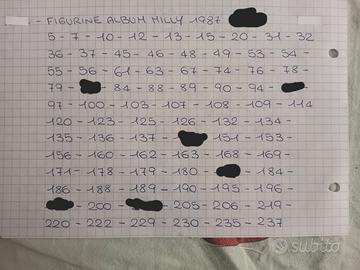 - FIGURINE ALBUM MILLY 1987
5 - 7 - 10 - 12 - 13 - 15 - 20 - 31 - 32
36 - 37 - 45 - 46 - 48 - 49 - 53 - 54 -
55 - 56 - 61 - 63 - 67 - 74 - 76 - 78 -
79 - - 84 - 88 - 89 - 90 - 94 - -
97 - 100 - 103 - 107 - 108 - 109 - 114
120 - 123 - 125 - 126 - 132 - 134 -
135 - 136 - 137 - - 151 - 153 -
156 - 160 - 162 - 163 - 168 - 169 -
171 - 178 - 179 - 180 - - 184 -
186 - 188 - 189 - 190 - 195 - 196 -
- 200 - - 205 - 206 - 219 -
220 - 222 - 229 - 230 - 235 - 237
subito